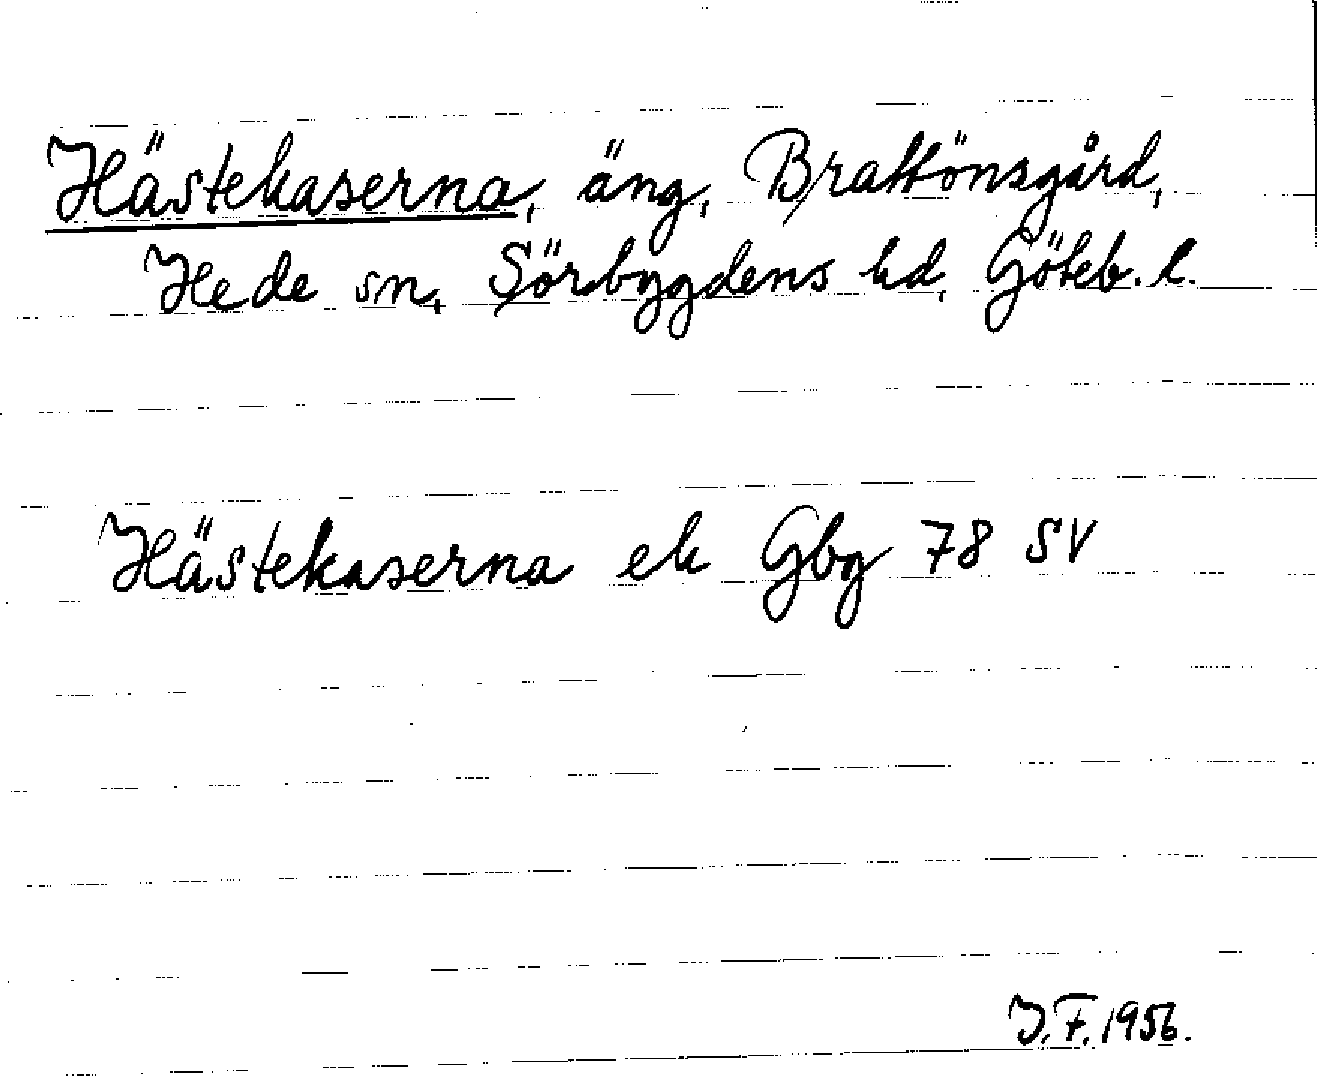 Hästekaserna, äng, Brattönsgård,
Hede sn, Sörbygdens hd, Göteb. l.
Hästekaserna ek Gbg 78 SV
J. F. 1956.